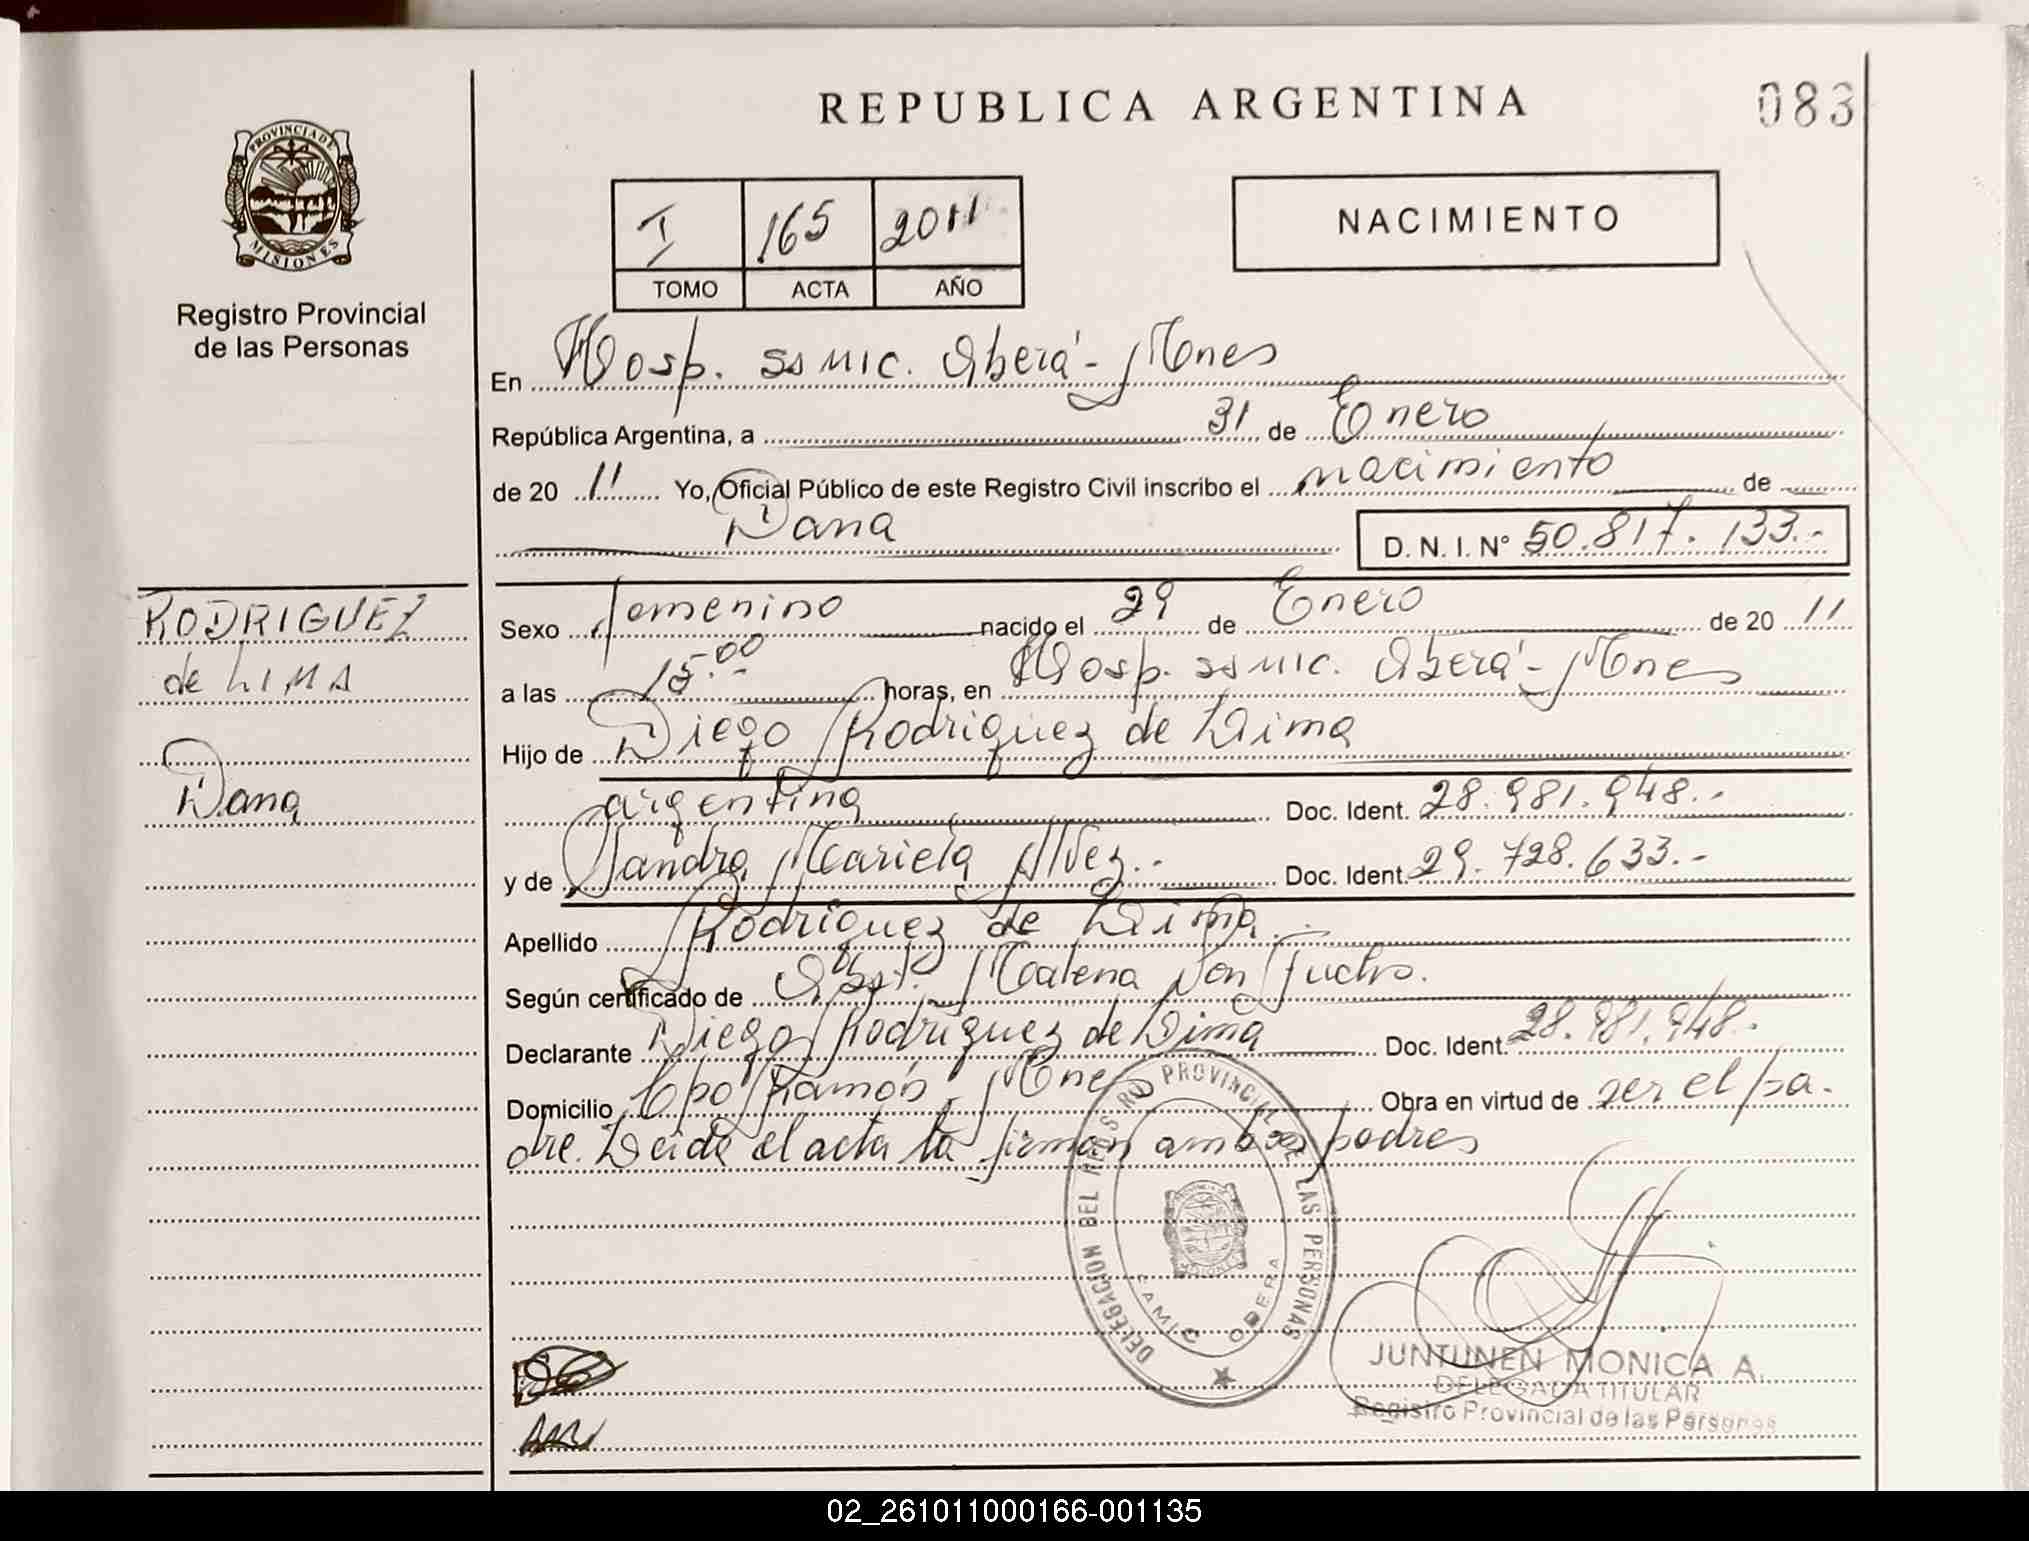 REPUBLICA ARGENTINA
083
PROVINCIA DE
MISIONES
Registro Provincial
de las Personas
I 165 2011
TOMO ACTA AÑO
NACIMIENTO
En Hosp. SAMIC. Oberá - Mnes
República Argentina, a 31 de Enero
de 20 11 Yo, Oficial Público de este Registro Civil inscribo el nacimiento de
Dana
D. N. I. N° 50.817.133.-
RODRIGUEZ
de LIMA
Dana
Sexo femenino nacido el 29 de Enero de 20 11
a las 15.00 horas, en Hosp. SAMIC. Oberá - Mnes
Hijo de Diego Rodriguez de Lima
argentina Doc. Ident. 28.981.948.-
y de Sandra Mariela Doc. Ident. 29.728.633.-
Apellido Rodriguez de Lima
Según certificado de Obst. Malena Von
Declarante Diego Rodriguez de Lima Doc. Ident. 28.981.948.-
Domicilio Cpo Ramón, Mnes Obra en virtud de ser el pa-
dre. Leida el acta la firman ambos padres
DELEGACION DEL REGISTRO PROVINCIAL DE LAS PERSONAS
SAMIC OBERA
MISIONES
JUNTUNEN MONICA A.
DELEGADA TITULAR
Registro Provincial de las Personas
02_261011000166-001135